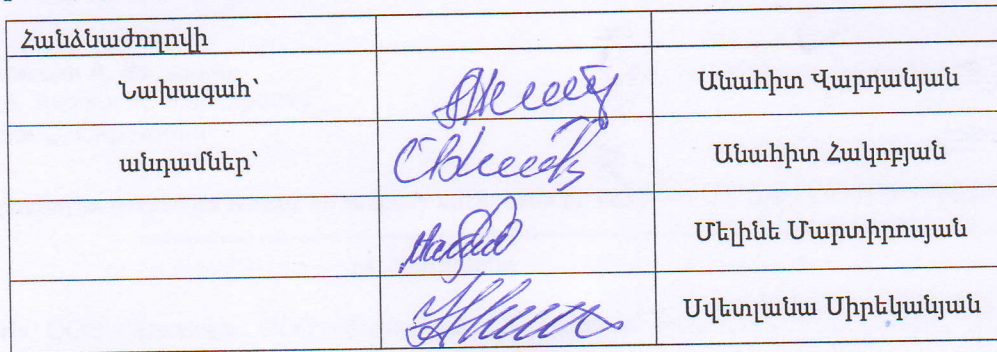 Հանձնաժողովի
Նախագահ՝ Անահիտ Վարդանյան
անդամներ՝ Անահիտ Հակոբյան
Մելինե Մարտիրոսյան
Սվետլանա Սիրեկանյան